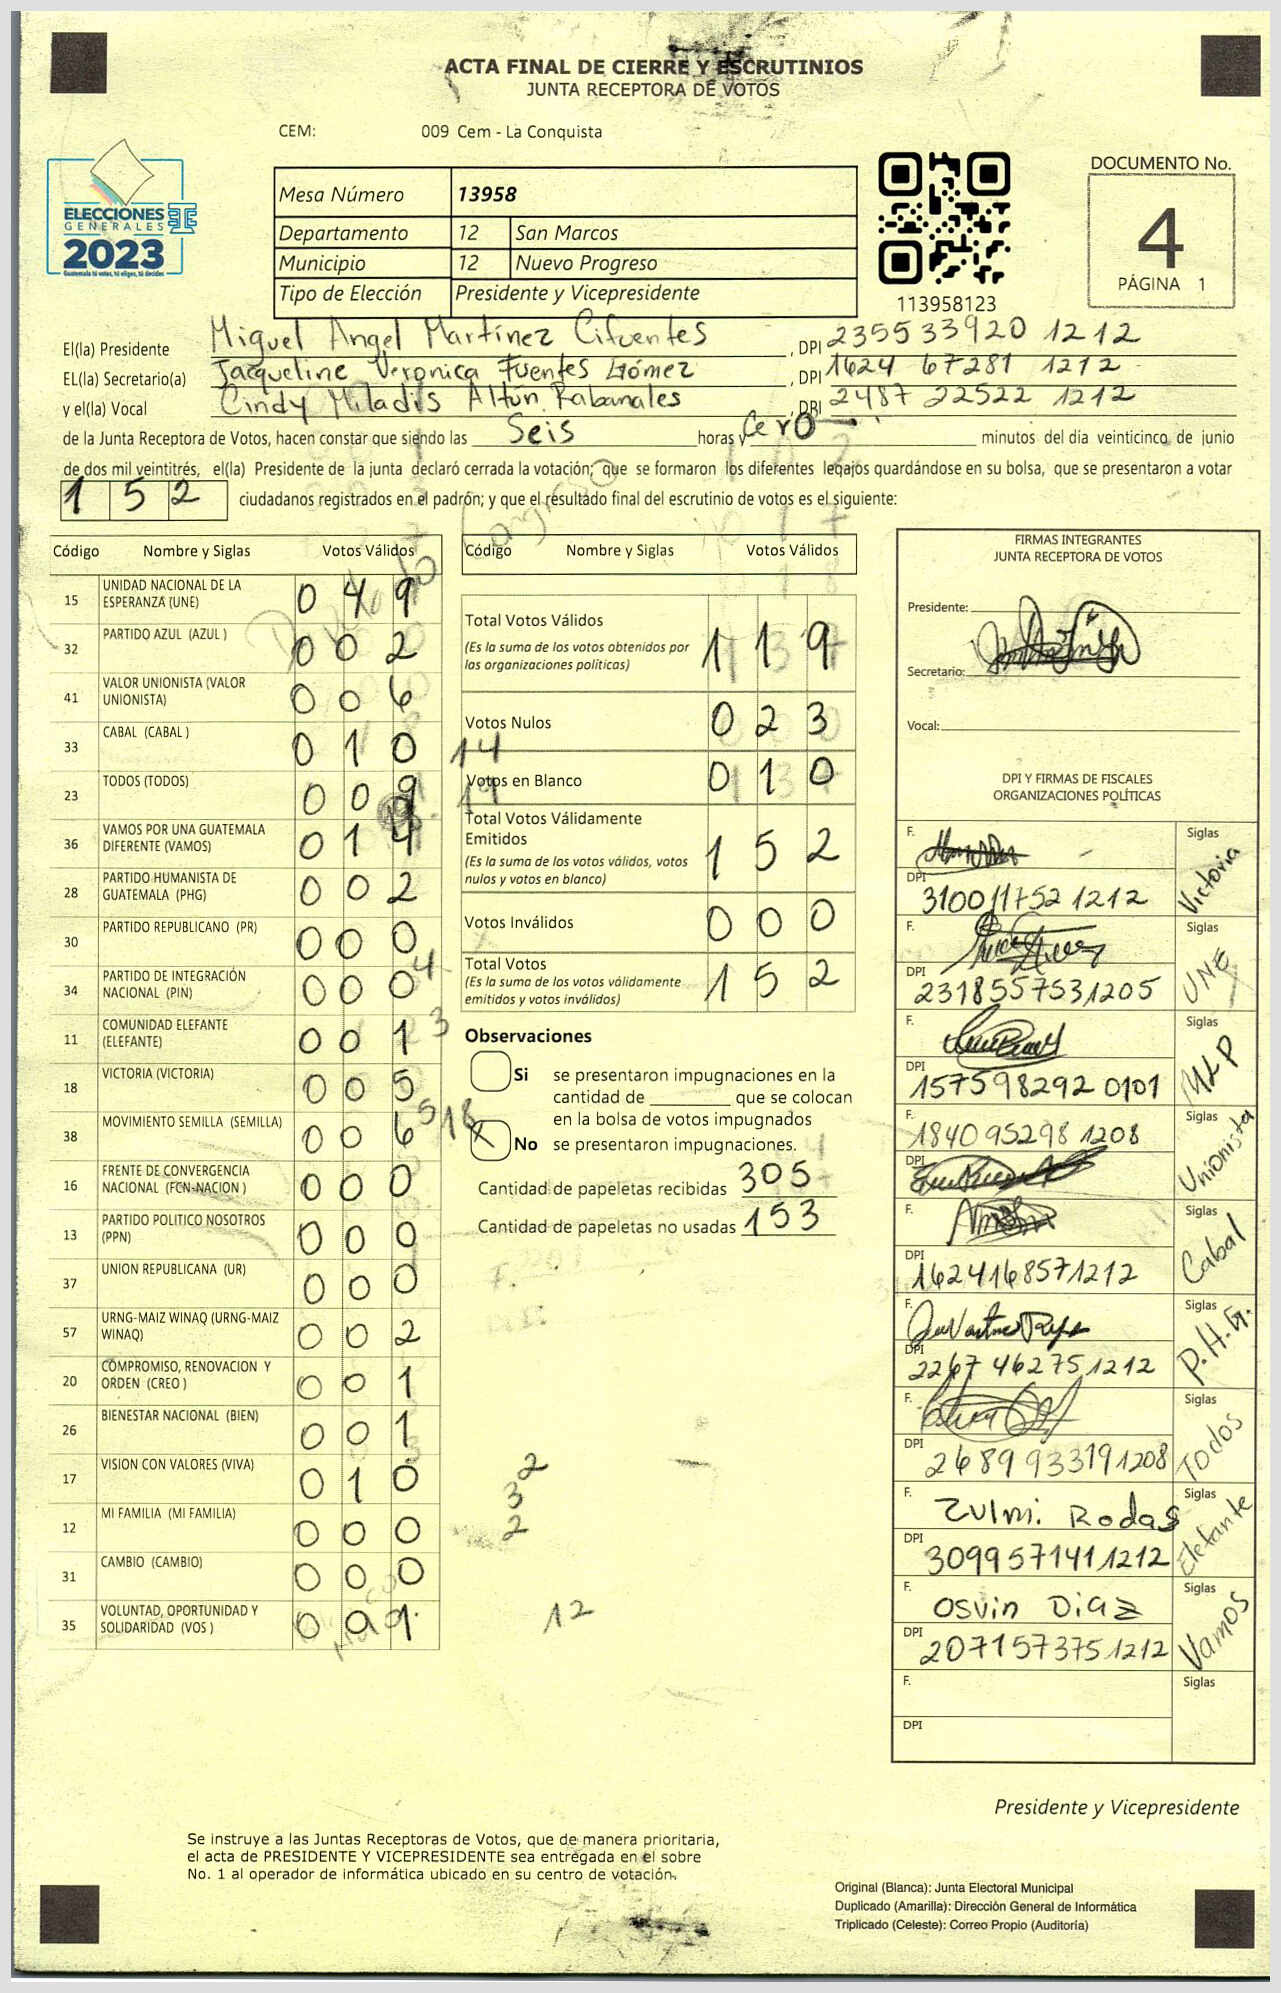 ACTA FINAL DE CIERRE Y ESCRUTINIOS
JUNTA RECEPTORA DE VOTOS
CEM: 009 Cem - La Conquista
ELECCIONES
GENERALES
2023
Guatemala tú votas, tú eliges, tú decides
Mesa Número 13958
Departamento 12 San Marcos
Municipio 12 Nuevo Progreso
Tipo de Elección Presidente y Vicepresidente
113958123
DOCUMENTO No.
4
PÁGINA 1
El(la) Presidente Miguel Angel Martínez Cifuentes, DPI 235533920 1212
EL(la) Secretario(a) Jacqueline Veronica Fuentes Gómez, DPI 1624 67281 1212
y el(la) Vocal Cindy Miladis Altún Rabanales, DPI 2487 22522 1212
de la Junta Receptora de Votos, hacen constar que siendo las Seis horas y Cero minutos del día veinticinco de junio
de dos mil veintitrés, el(la) Presidente de la junta declaró cerrada la votación; que se formaron los diferentes legajos quardándose en su bolsa, que se presentaron a votar
152 ciudadanos registrados en el padrón; y que el resultado final del escrutinio de votos es el siguiente:
Código Nombre y Siglas Votos Válidos
15 UNIDAD NACIONAL DE LA ESPERANZA (UNE) 0 4 9
32 PARTIDO AZUL (AZUL ) 0 0 2
41 VALOR UNIONISTA (VALOR UNIONISTA) 0 0 6
33 CABAL (CABAL ) 0 1 0
23 TODOS (TODOS) 0 0 9
36 VAMOS POR UNA GUATEMALA DIFERENTE (VAMOS) 0 1 4
28 PARTIDO HUMANISTA DE GUATEMALA (PHG) 0 0 2
30 PARTIDO REPUBLICANO (PR) 0 0 0
34 PARTIDO DE INTEGRACIÓN NACIONAL (PIN) 0 0 0
11 COMUNIDAD ELEFANTE (ELEFANTE) 0 0 1
18 VICTORIA (VICTORIA) 0 0 5
38 MOVIMIENTO SEMILLA (SEMILLA) 0 0 6
16 FRENTE DE CONVERGENCIA NACIONAL (FCN-NACION ) 0 0 0
13 PARTIDO POLITICO NOSOTROS (PPN) 0 0 0
37 UNION REPUBLICANA (UR) 0 0 0
57 URNG-MAIZ WINAQ (URNG-MAIZ WINAQ) 0 0 2
20 COMPROMISO, RENOVACION Y ORDEN (CREO ) 0 0 1
26 BIENESTAR NACIONAL (BIEN) 0 0 1
17 VISION CON VALORES (VIVA) 0 1 0
12 MI FAMILIA (MI FAMILIA) 0 0 0
31 CAMBIO (CAMBIO) 0 0 0
35 VOLUNTAD, OPORTUNIDAD Y SOLIDARIDAD (VOS )
14
4
3
5
18
2
3
2
12
Código Nombre y Siglas Votos Válidos
Total Votos Válidos 1 1 9
(Es la suma de los votos obtenidos por
las organizaciones politicas)
Votos Nulos 0 2 3
Votos en Blanco 0 1 0
Total Votos Válidamente
Emitidos 1 5 2
(Es la suma de los votos válidos, votos
nulos y votos en blanco)
Votos Inválidos 0 0 0
Total Votos 1 5 2
(Es la suma de los votos válidamente
emitidos y votos inválidos)
Observaciones
Si se presentaron impugnaciones en la
cantidad de ________ que se colocan
en la bolsa de votos impugnados
X No se presentaron impugnaciones.
Cantidad de papeletas recibidas 305
Cantidad de papeletas no usadas 153
FIRMAS INTEGRANTES
JUNTA RECEPTORA DE VOTOS
Presidente:
Secretario:
Vocal:
DPI Y FIRMAS DE FISCALES
ORGANIZACIONES POLÍTICAS
F. Siglas Victoria
DPI 310011752 1212
F. Siglas UNE
DPI 2318557531205
F. Siglas MLP
DPI 157598292 0101
F. 1840 95298 1208 Siglas Unionista
DPI
F. Siglas Cabal
DPI 1624168571212
F. Siglas P.H.G.
DPI 2267 462751212
F. Siglas Todos
DPI 2689 933191208
F. Zulmi Rodas Siglas Elefante
DPI 3099571411212
F. Osvin Diaz Siglas Vamos
DPI 2071573751212
F. Siglas
DPI
Presidente y Vicepresidente
Se instruye a las Juntas Receptoras de Votos, que de manera prioritaria,
el acta de PRESIDENTE Y VICEPRESIDENTE sea entregada en el sobre
No. 1 al operador de informática ubicado en su centro de votación.
Original (Blanca): Junta Electoral Municipal
Duplicado (Amarilla): Dirección General de Informática
Triplicado (Celeste): Correo Propio (Auditoría)